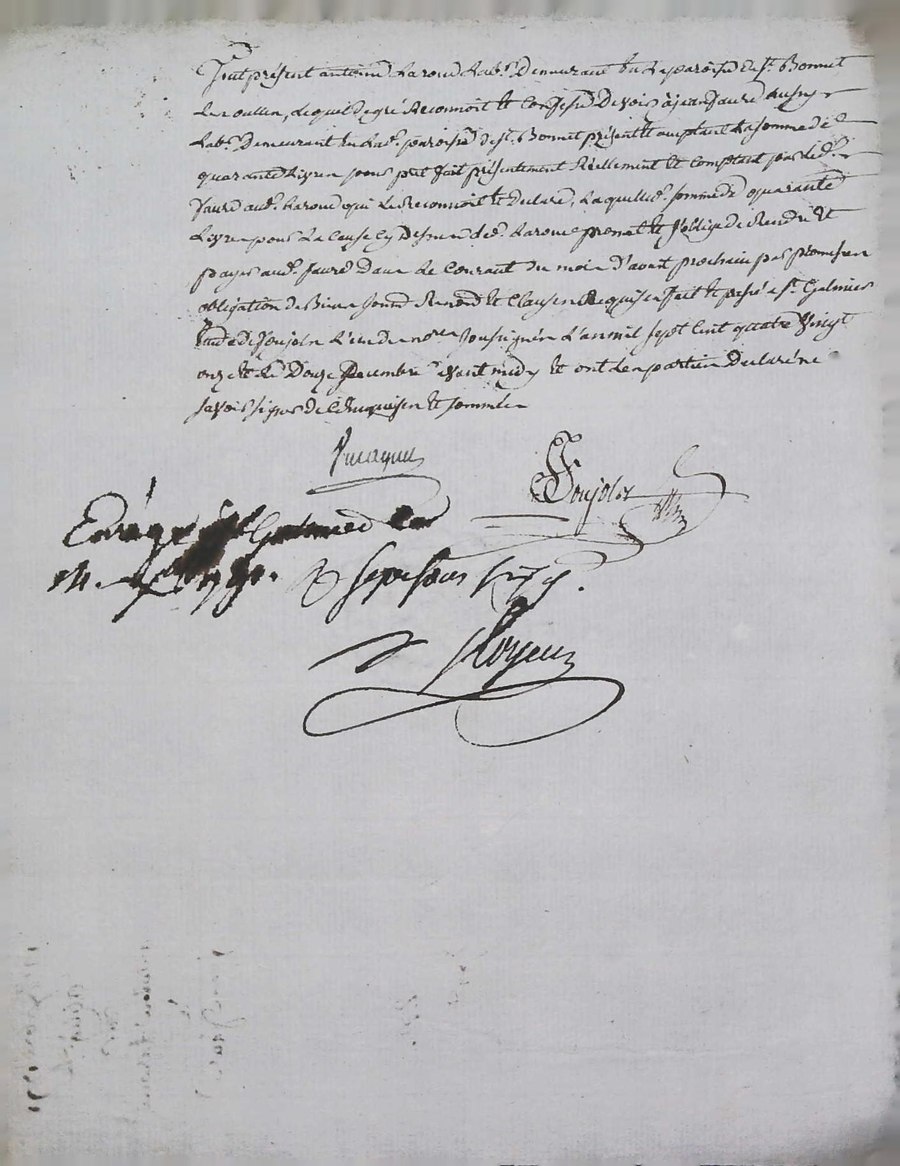 Fut présent antoine Laroue Lab.r Demeurant En La paroisse de St. Bonnet
Les oulles, Lequel de gré Reconnoit Et Confesse Devoir à jean faure aussy
Lab.r Demeurant En lad.e paroisse de St. Bonnet présent Et acceptant La somme de
quarante Livres pour prêt fait présentement Réellement Et comptant par led.
faure aud. Laroue qui Le Reconnoit Et déclare, Laquelle d.e somme de quarante
Livres pour La Cause Cy Dessus led. Laroue promet Et s'oblige de Rendre Et
payer aud. faure Dans Le Courant du mois d'aout prochain par promesses
obligation de Biens soum.ons Renon.ons Et Clauses Requises fait Et passé a St. Galmier
Etude de foujols L'un des no.res soussignés L'an mil sept Cent quatre Vingt
onze Et Le Douze Decembre avant midy Et ont Les parties Déclaré ne
savoir signer de Ce Enquises Et sommées
foujols
Galmier
sept sous